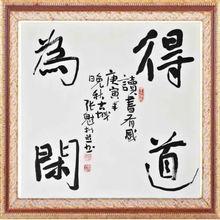 得道
為閑
讀書有感
庚寅年
晚秋古城